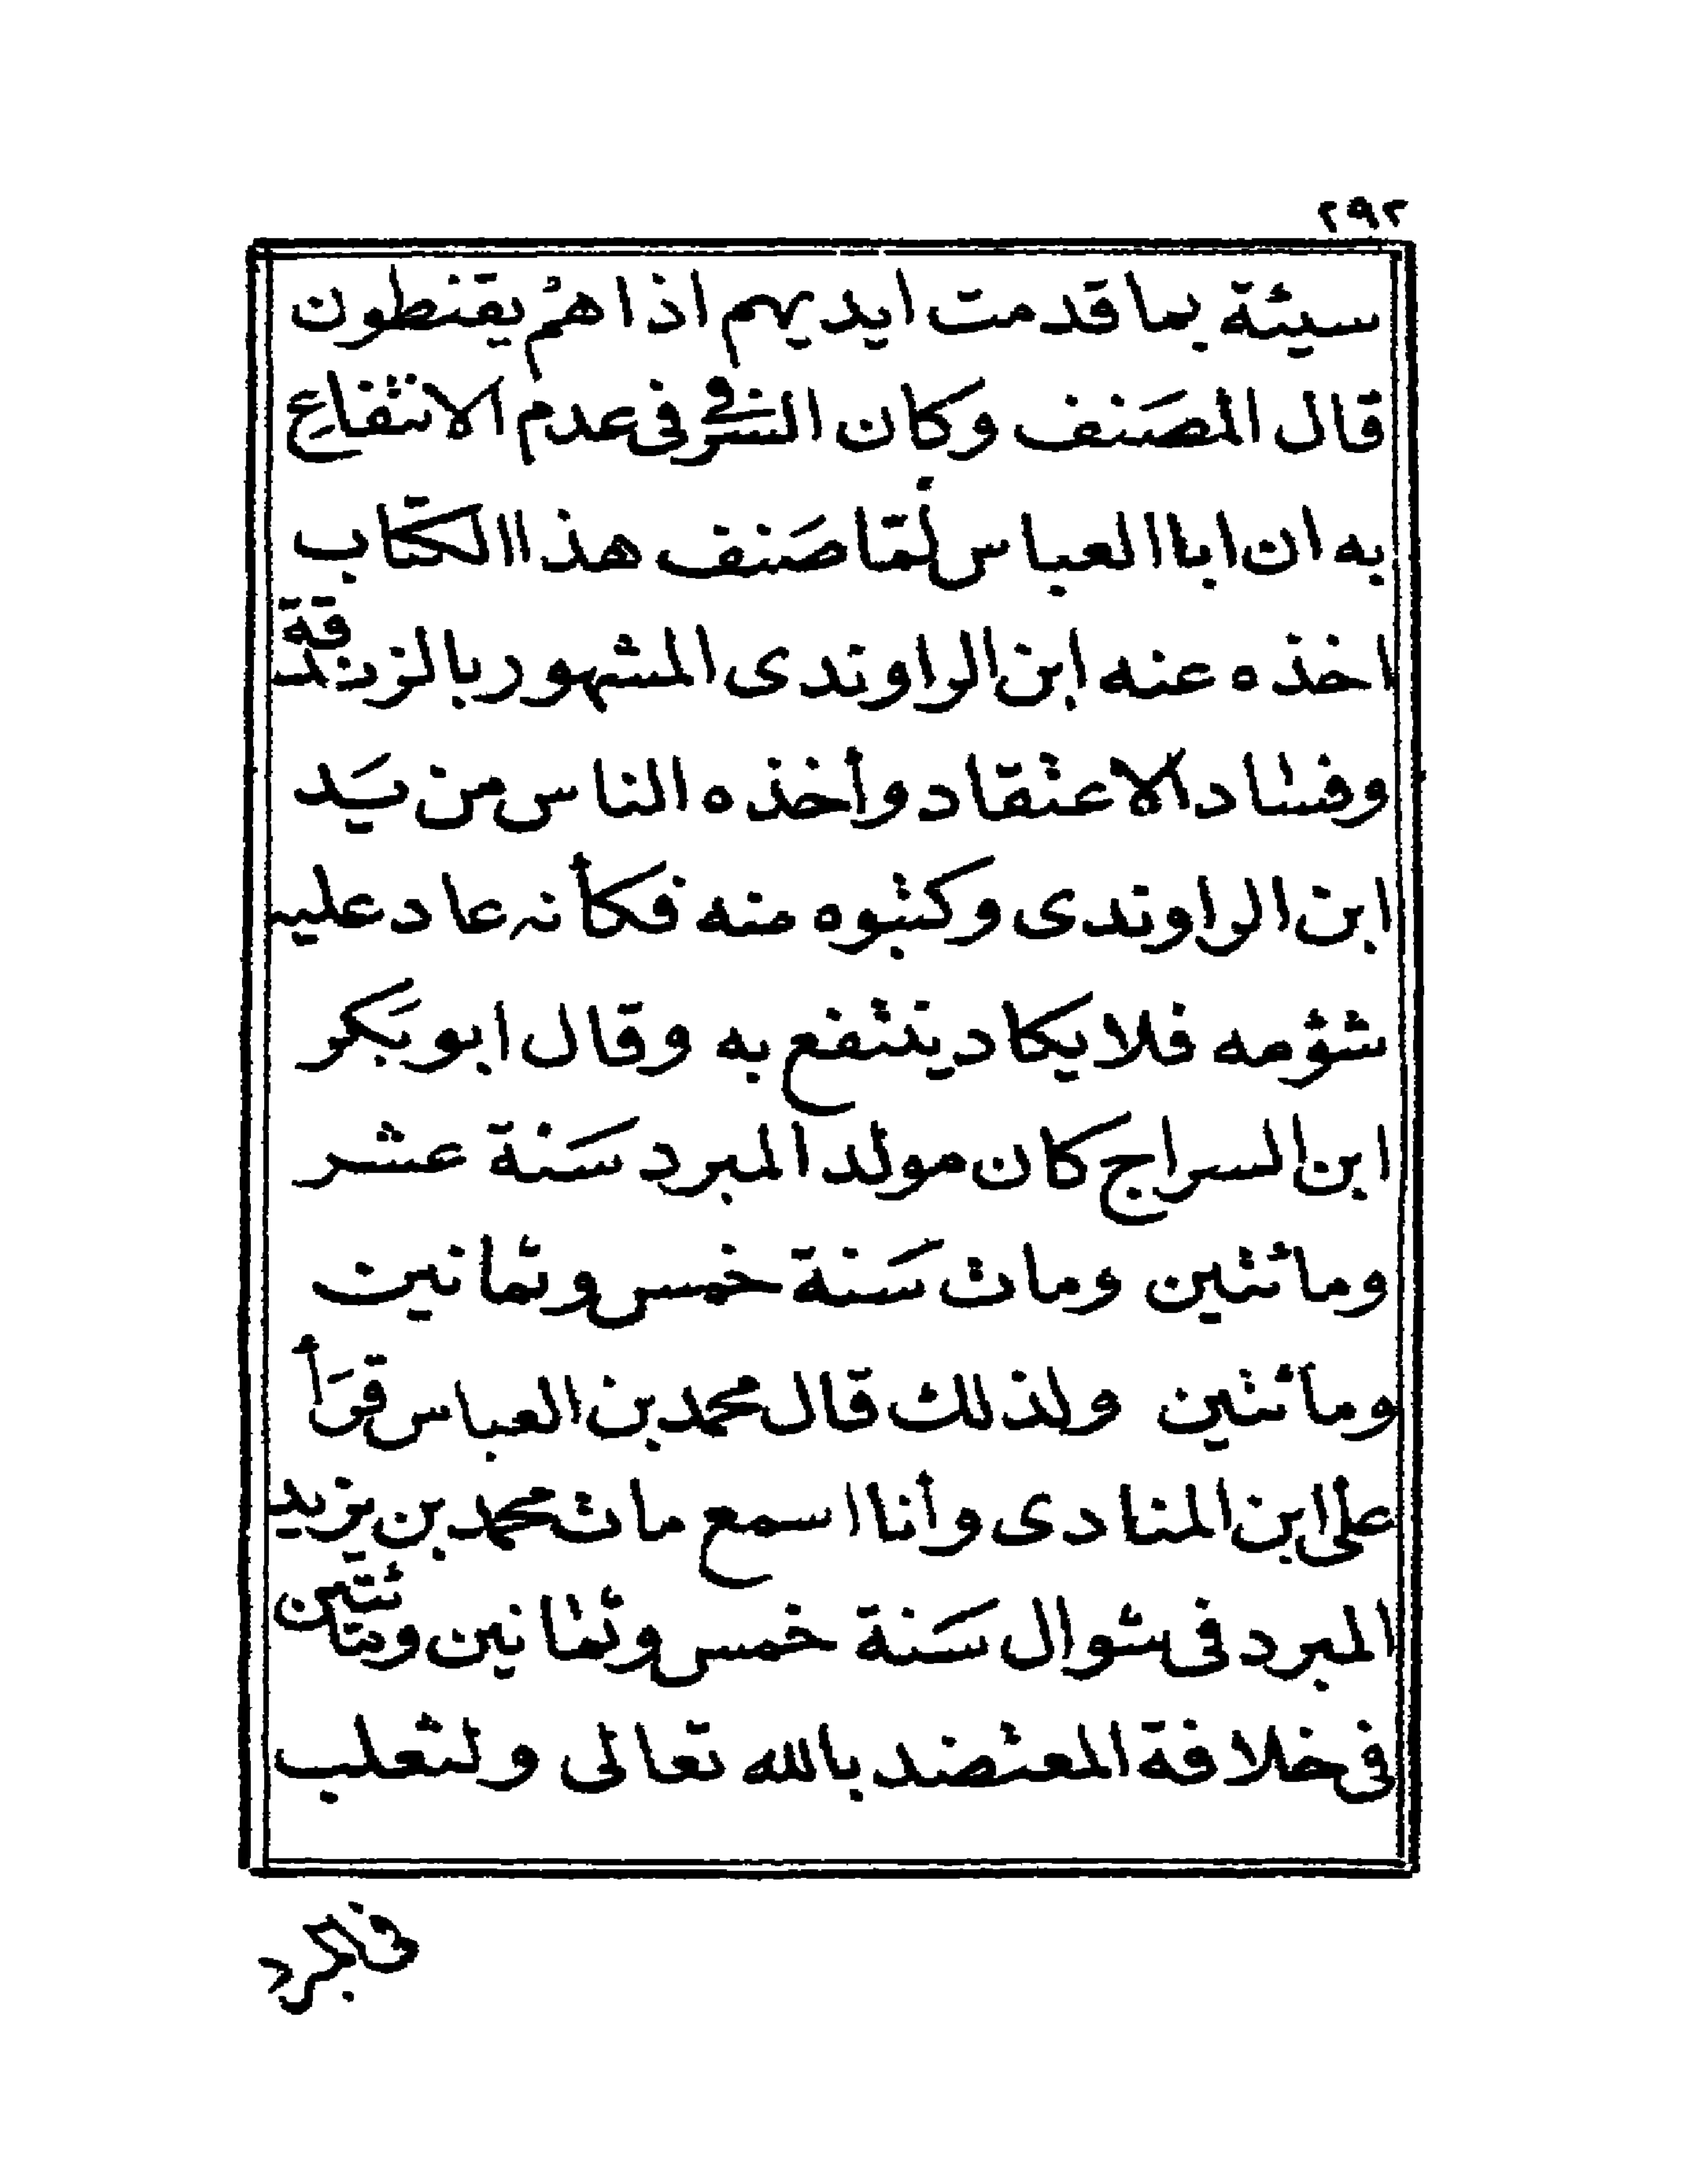 ٢٩٢
سيئة بما قدمت ايديهم اذا هم يقنطون
قال المصَنف وكان السر فى عدم الانتفاع
به ان ابا العباس لمّا صَنف هذا الكتاب
اخذه عنه ابن الراوندى المشهور بالزندقة
وفساد الاعتقاد وأخذه الناس من يَد
ابن الراوندى وكتبوه منه فكأنه عاد عليه
شؤمه فلا يكاد ينتفع به وقال ابو بَكر
ابن السراج كان مولد المبرد سَنة عشر
ومائتين ومات سَنة خمس وثمانين
ومائتين ولذلك قال محمد بن العباس قرَأ
على ابن المنادى وأنا اسمع مات محمد بن يزيد
المبرد فى شوال سَنة خمس وثمانين ومائتين
فى خلافة المعتضد بالله تعالى ولثعلب
فى المبرد